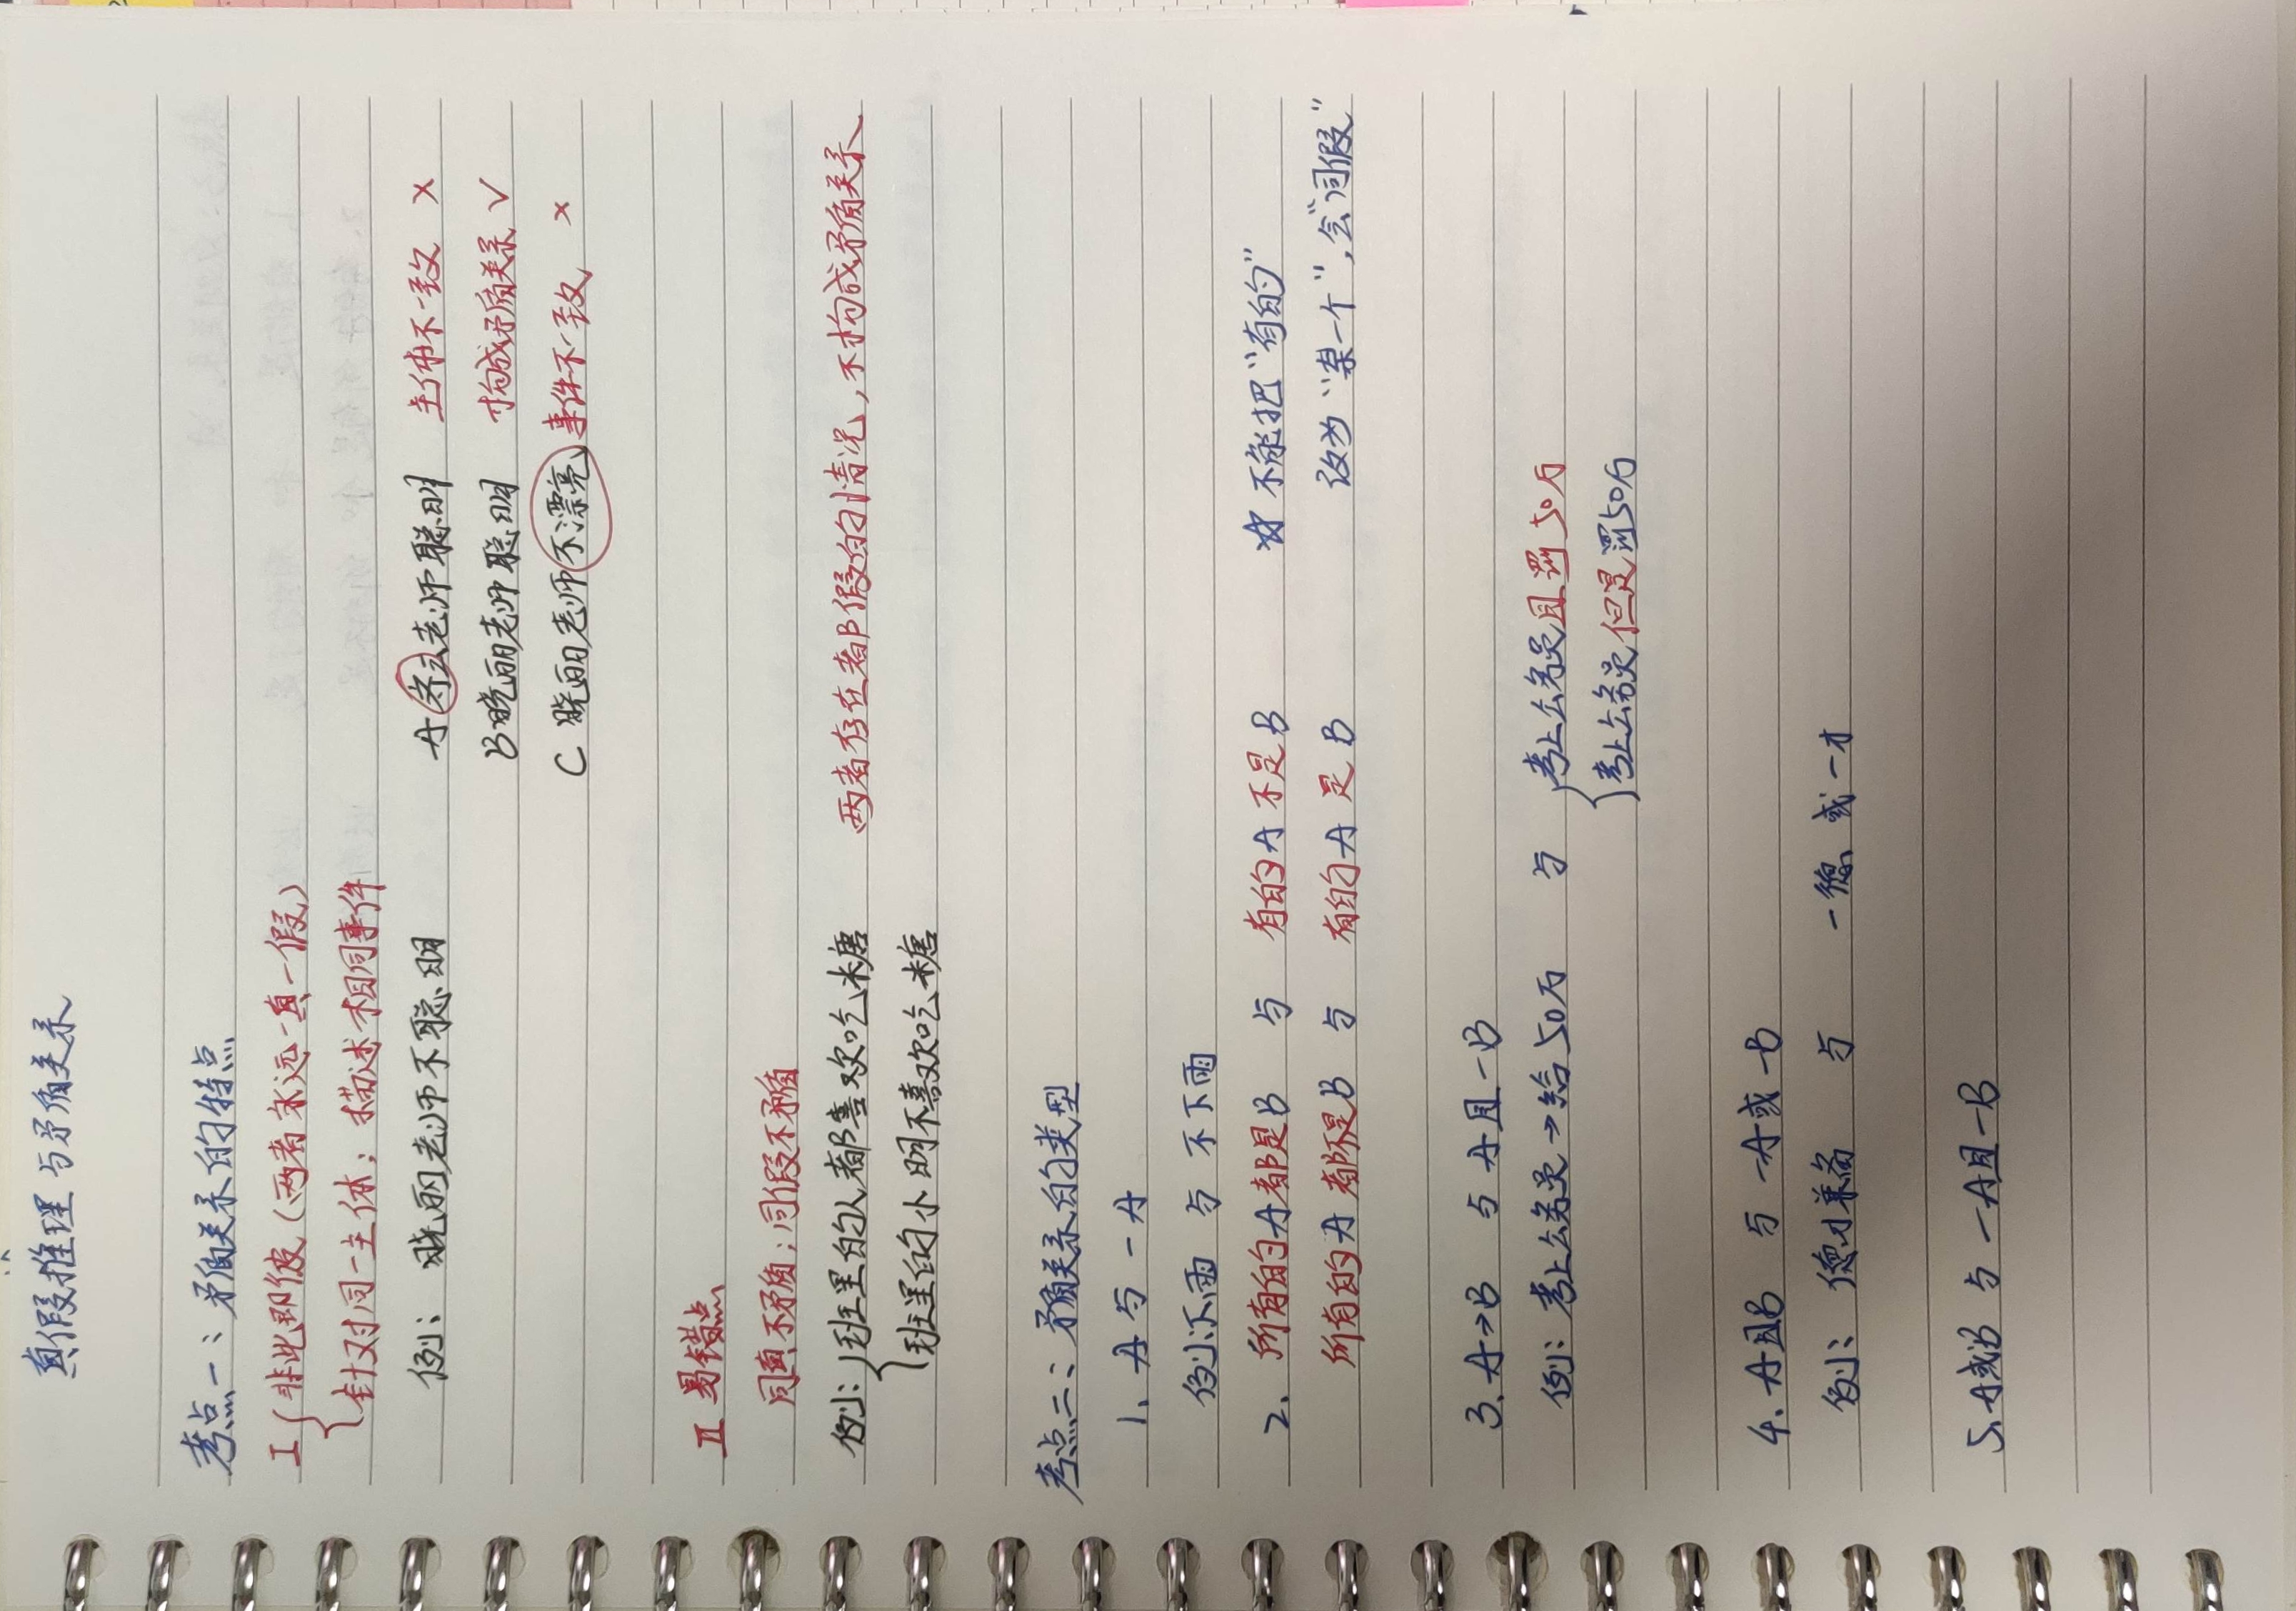 真假推理与矛盾关系
考点一：矛盾关系的特点
I { 非此即彼（两者永远一真一假）
针对同一主体；描述相同事件
例：晓丽老师不聪明 A 齐云老师聪明 主体不一致 ×
B 晓丽老师聪明 构成矛盾关系 √
C 晓丽老师不漂亮 事件不一致 ×
II 易错点
同真不矛盾；同假不矛盾
例：{ 班里的人都喜欢吃糖 两者存在都假的情况，不构成矛盾关系
班里的小明不喜欢吃糖
考点二：矛盾关系的类型
1. A 与 -A
例：下雨 与 不下雨
2. 所有的A都是B 与 有的A不是B ☆ 不能把“有的”
所有的A都不是B 与 有的A是B 改为“某一个”，会“同假”
3. A→B 与 A且-B
例：考上公务员→给50万 与 { 考上公务员且罚50万
考上公务员但是罚50万
4. A且B 与 -A或-B
例：德才兼备 与 -德或-才
5. A或B 与 -A且-B